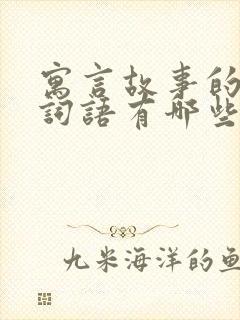 寓言故事的
詞語有哪些
九米海洋的魚